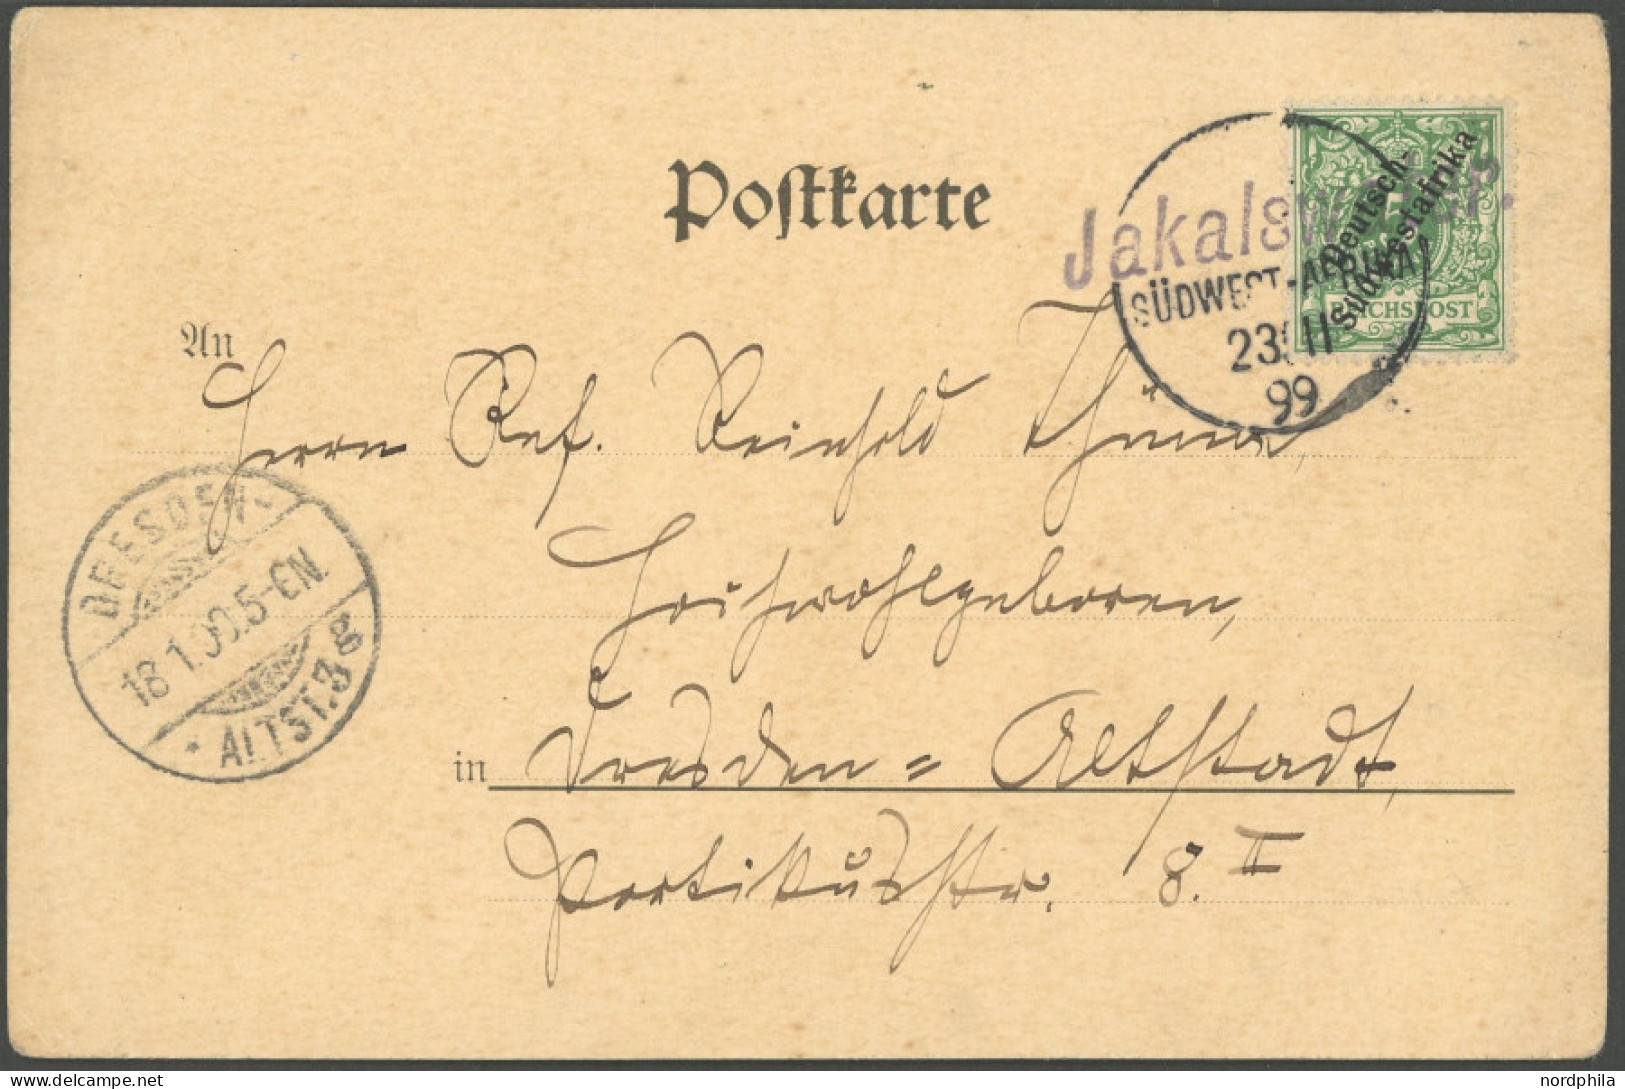 Postkarte
Jakalsw
Deutsch-
Südwestafrika
REICHSPOST
SÜDWEST-AFRIKA
23 11
99
An
Herrn Ref. Reinhold
Hochwohlgeboren,
DRESDEN-
18 1.00.5-6N.
* ALTST.3 g
in Dresden = Altstadt,
Portikusstr. 8. II
nordphila